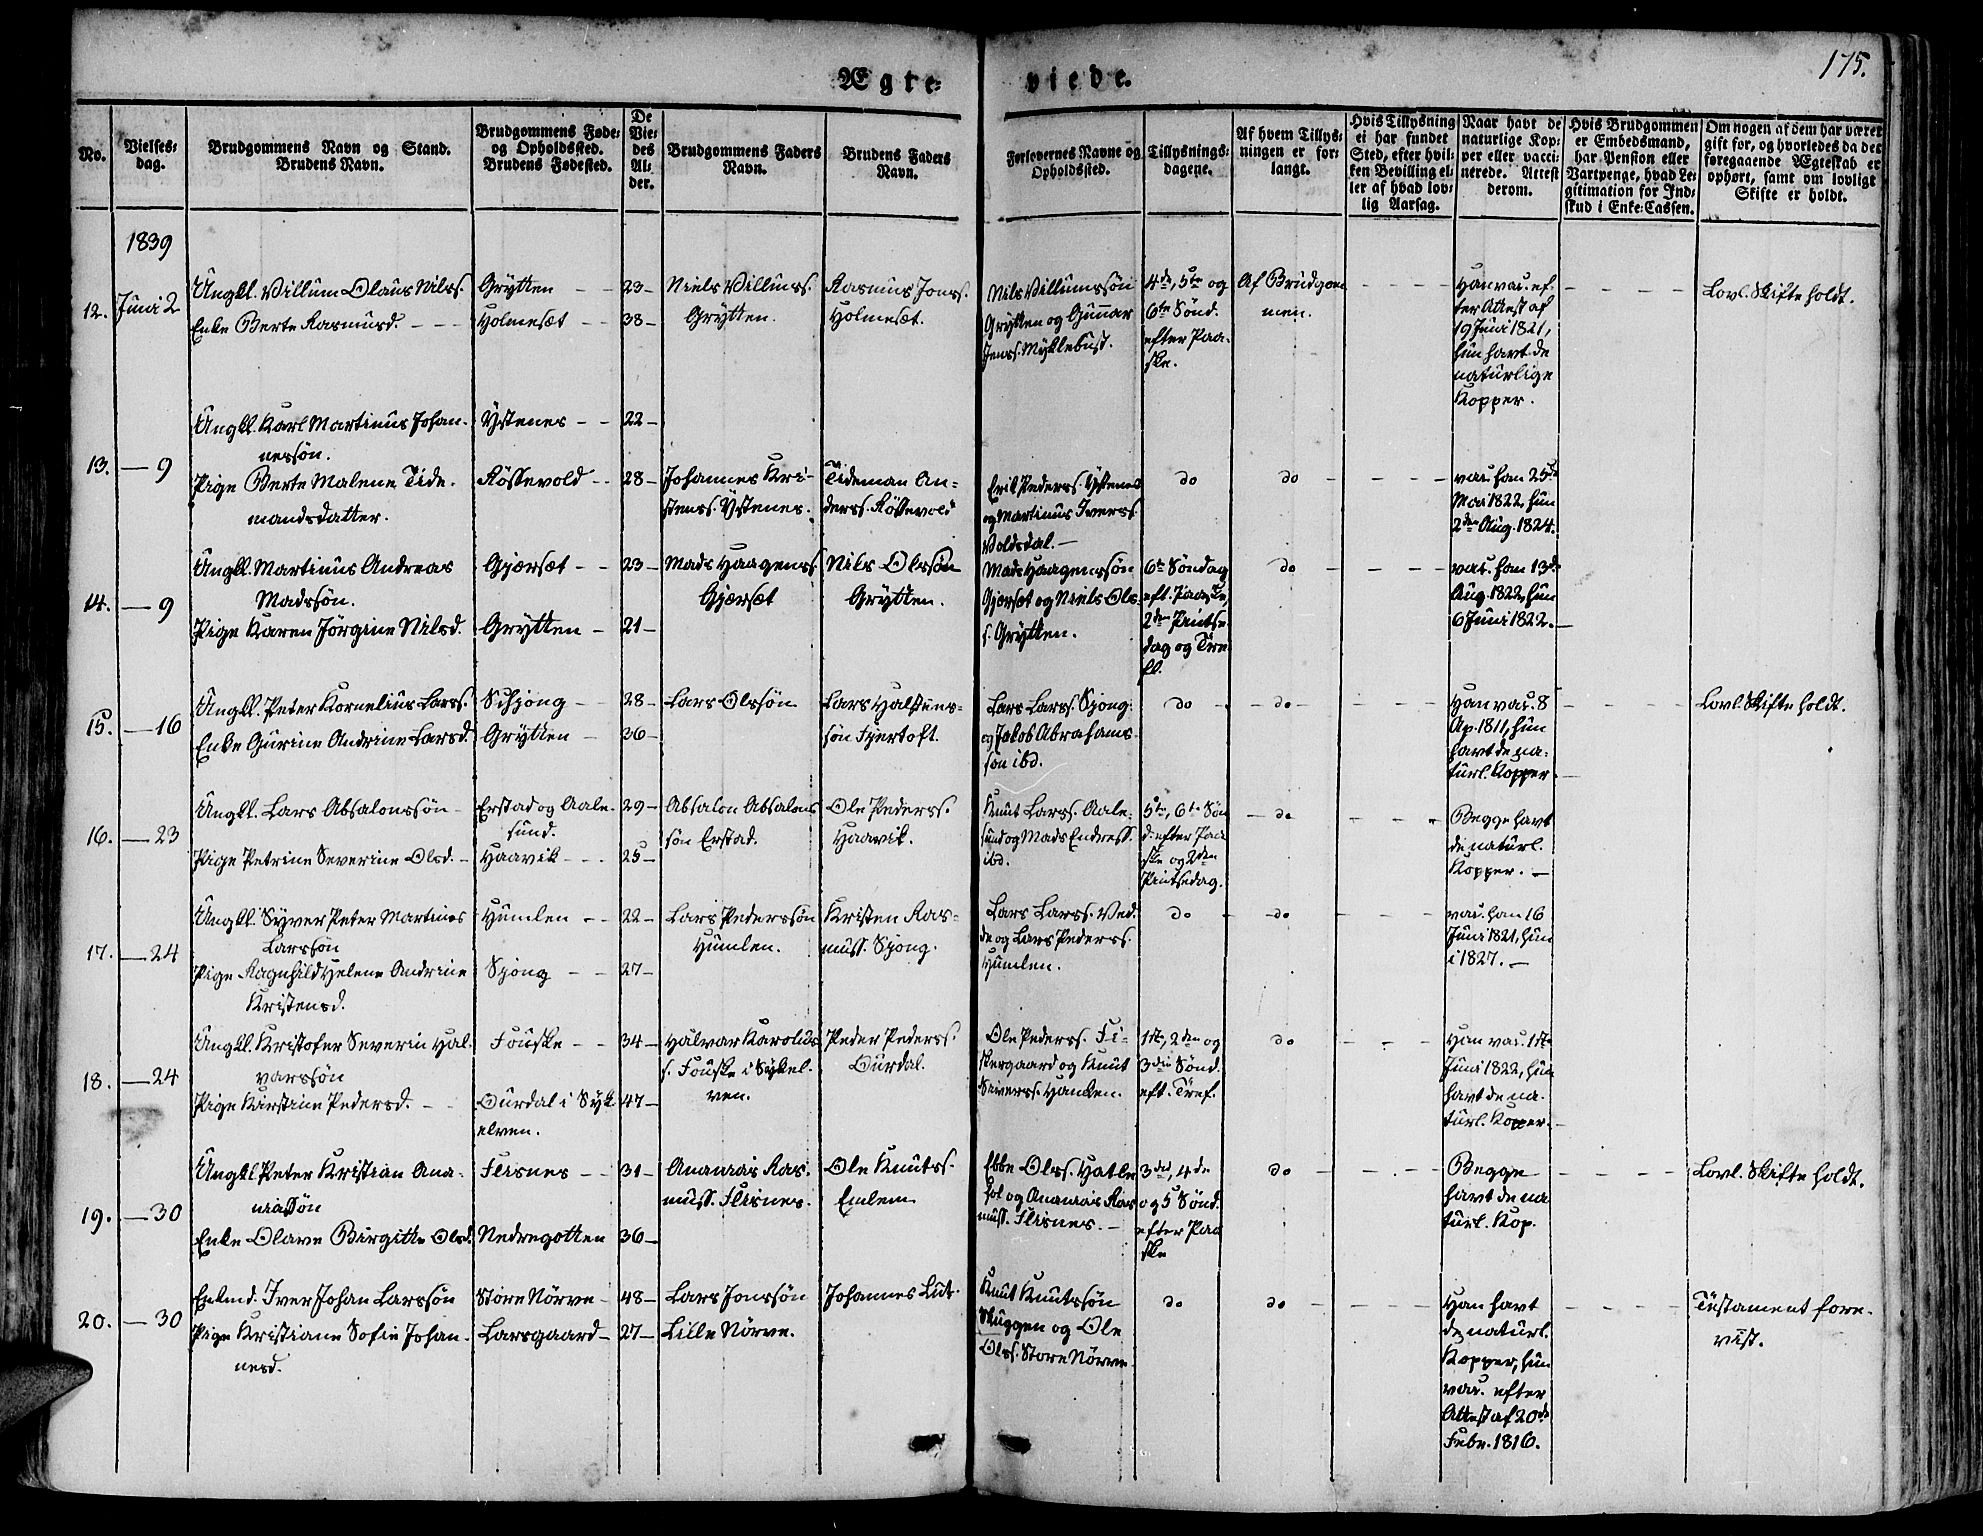 175.
Ægte-
viede.
No.
Vielses-
dag.
Brudgommens Navn og Stand.
Brudens Navn.
Brudgommens Føde-
og Opholdssted.
Brudens Fødested.
De
Vie-
des
Al-
der.
Brudgommens Faders
Navn.
Brudens Faders
Navn.
Forlovernes Navne og
Opholdssted.
Tillysnings-
dagene.
Af hvem Tillys-
ningen er for-
langt.
Hvis Tillysning
ei har fundet
Sted, efter hvil-
ken Bevilling el-
ler af hvad lov-
lig Aarsag.
Naar havt de
naturlige Kop-
per eller vacci-
nerede. Attest
derom.
Hvis Brudgommen
er Embedsmand,
har Pension eller
Vartpenge, hvad Le-
gitimation for Ind-
skud i Enke-Cassen.
Om nogen af dem har været
gift før, og hvorledes da det
foregaaende Ægteskab er
ophørt, samt om lovligt
Skifte er holdt.
1839
12.
Juni 2
Ungkl. Villum Olaus Nilss.
Enke Berte Rasmusd.
Grytten
Holmesæt
23
38
Niels Villums.
Grytten.
Rasmus Jonss.
Holmesæt.
Nils Villumssøn
Grytten og Gunnar
Jenss. Myklebust.
4de, 5te og
6te Sønd.
efter Paa-
ske.
Af Brudgom-
men.
Han vac. ef-
ter Attest af
19 Juni 1821,
hun havt de
naturlige
Kopper.
Lovl. Skifte holdt.
13.
— 9
Ungkl. Karl Martinus Johan-
nessøn.
Pige Berte Malene Tide-
mandsdatter.
Ystenes
Røssevold
22
28
Johannes Kri-
stenss. Ystenes.
Tideman An-
derss. Røssevold
Erik Pederss. Ystenes
og Martinus Iverss.
Voldsdal.
do
do
vac. han 25de
Mai 1822, hun
2den Aug. 1824.
14.
— 9
Ungkl. Martinus Andreas
Madssøn.
Pige Karen Jørgine Nilsd.
Gjærsæt
Grytten
23
21
Mads Haagenss.
Gjærsæt
Nils Olssøn
Grytten.
Mads Haagenssøn
Gjærsæt og Niels Ols-
s. Grytten.
6te Søndag
eft. Paaske,
2den Pintse-
dag og Tre-
f.
do
vac. han 13de
Aug. 1822, hun
6 Juni 1822.
15.
— 16
Ungkl. Peter Kornelius Larss.
Enke Gurine Andrine Larsd.
Schjong
Grytten
28
36
Lars Olssøn
Lars Halstens-
søn Fjertoft.
Lars Larss. Sjong.
og Jakob Abrahams-
søn ibd.
do
do
Han vac. 8
Ap. 1811, hun
havt de na-
turl. Kopper.
Lovl. Skifte holdt.
16.
— 23
Ungkl. Lars Absalonssøn
Pige Petrine Severine Olsd.
Erstad og Aale-
sund.
Haavik
29
25
Absalon Absalons
søn Erstad.
Ole Pederss.
Haavik.
Knut Larss. Aale-
sund og Mads Endress.
ibd.
5te, 6te Søn
d. efter Paa
ske og 2den
Pintsedag.
do
Begge havt
de naturl.
Kopper.
17.
— 24
Ungkl. Syver Peter Martinus
Larssøn
Pige Ragnhild Helene Andrine
Kristensd.
Humlen
Sjong
22
27
Lars Pederssøn
Humlen.
Kristen Ras-
muss. Sjong.
Lars Larss. Ved-
de og Lars Pederss.
Humlen.
do
do
vac. han 16
Juni 1821, hun
i 1827.
18.
— 24
Ungkl. Kristofer Severin Hal-
varssøn
Pige Kirstine Pedersd.
Fouske
Ourdal i Syk
elven.
34
47
Halvar Karolus
s. Fouske i Sykel-
ven.
Peder Pederss.
Ourdal.
Ole Pederss. Fi-
skergaard og Knut
Seiverss. Hanken.
1ste, 2den og
3die Sønd.
eft. Tref.
do
Han vac. 1ste
Juni 1822, hun
havt de na-
turl. Kopper.
19.
— 30
Ungkl. Peter Kristian Ana-
niassøn
Enke Olave Birgitte Olsd.
Flisnes
Nedregotten
31
36
Ananias Ras-
muss. Flisnes.
Ole Knutss.
Emlem
Ebbe Olss. Hatle-
hol og Ananias Ras
muss. Flisnes.
3die, 4de
og 5 Sønd.
efter Paa
ske
do
Begge
havt de na
turl. Kop.
Lovl. Skifte holdt.
20.
— 30
Enkmd. Iver Johan Larssøn
Pige Kristiane Sofie Johan-
nesd.
Store Nörve
Larsgaard
48
27
Lars Jonssøn
Lille Nörve.
Johannes Lut.
Knut Knutssøn
Skuggen og Ole
Olss. Store Nörve.
do
do
Han havt
de naturl.
Kopper, hun
vac. efter
Attest af 20de
Febr. 1816.
Testament fore-
vist.